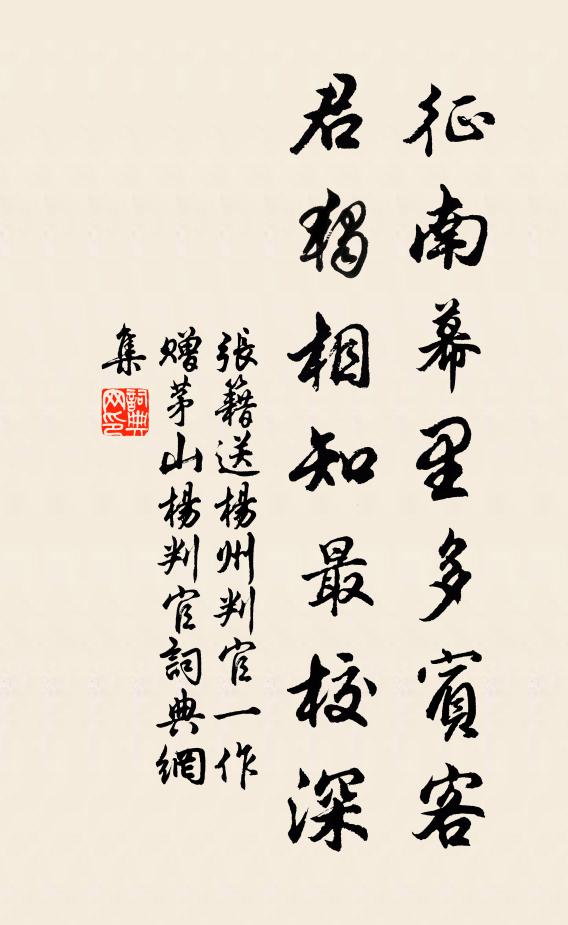 征南幕里多賓客
君獨相知最校深
張籍送楊州判官一作
贈茅山楊判官詞典網
集
詞典
网印